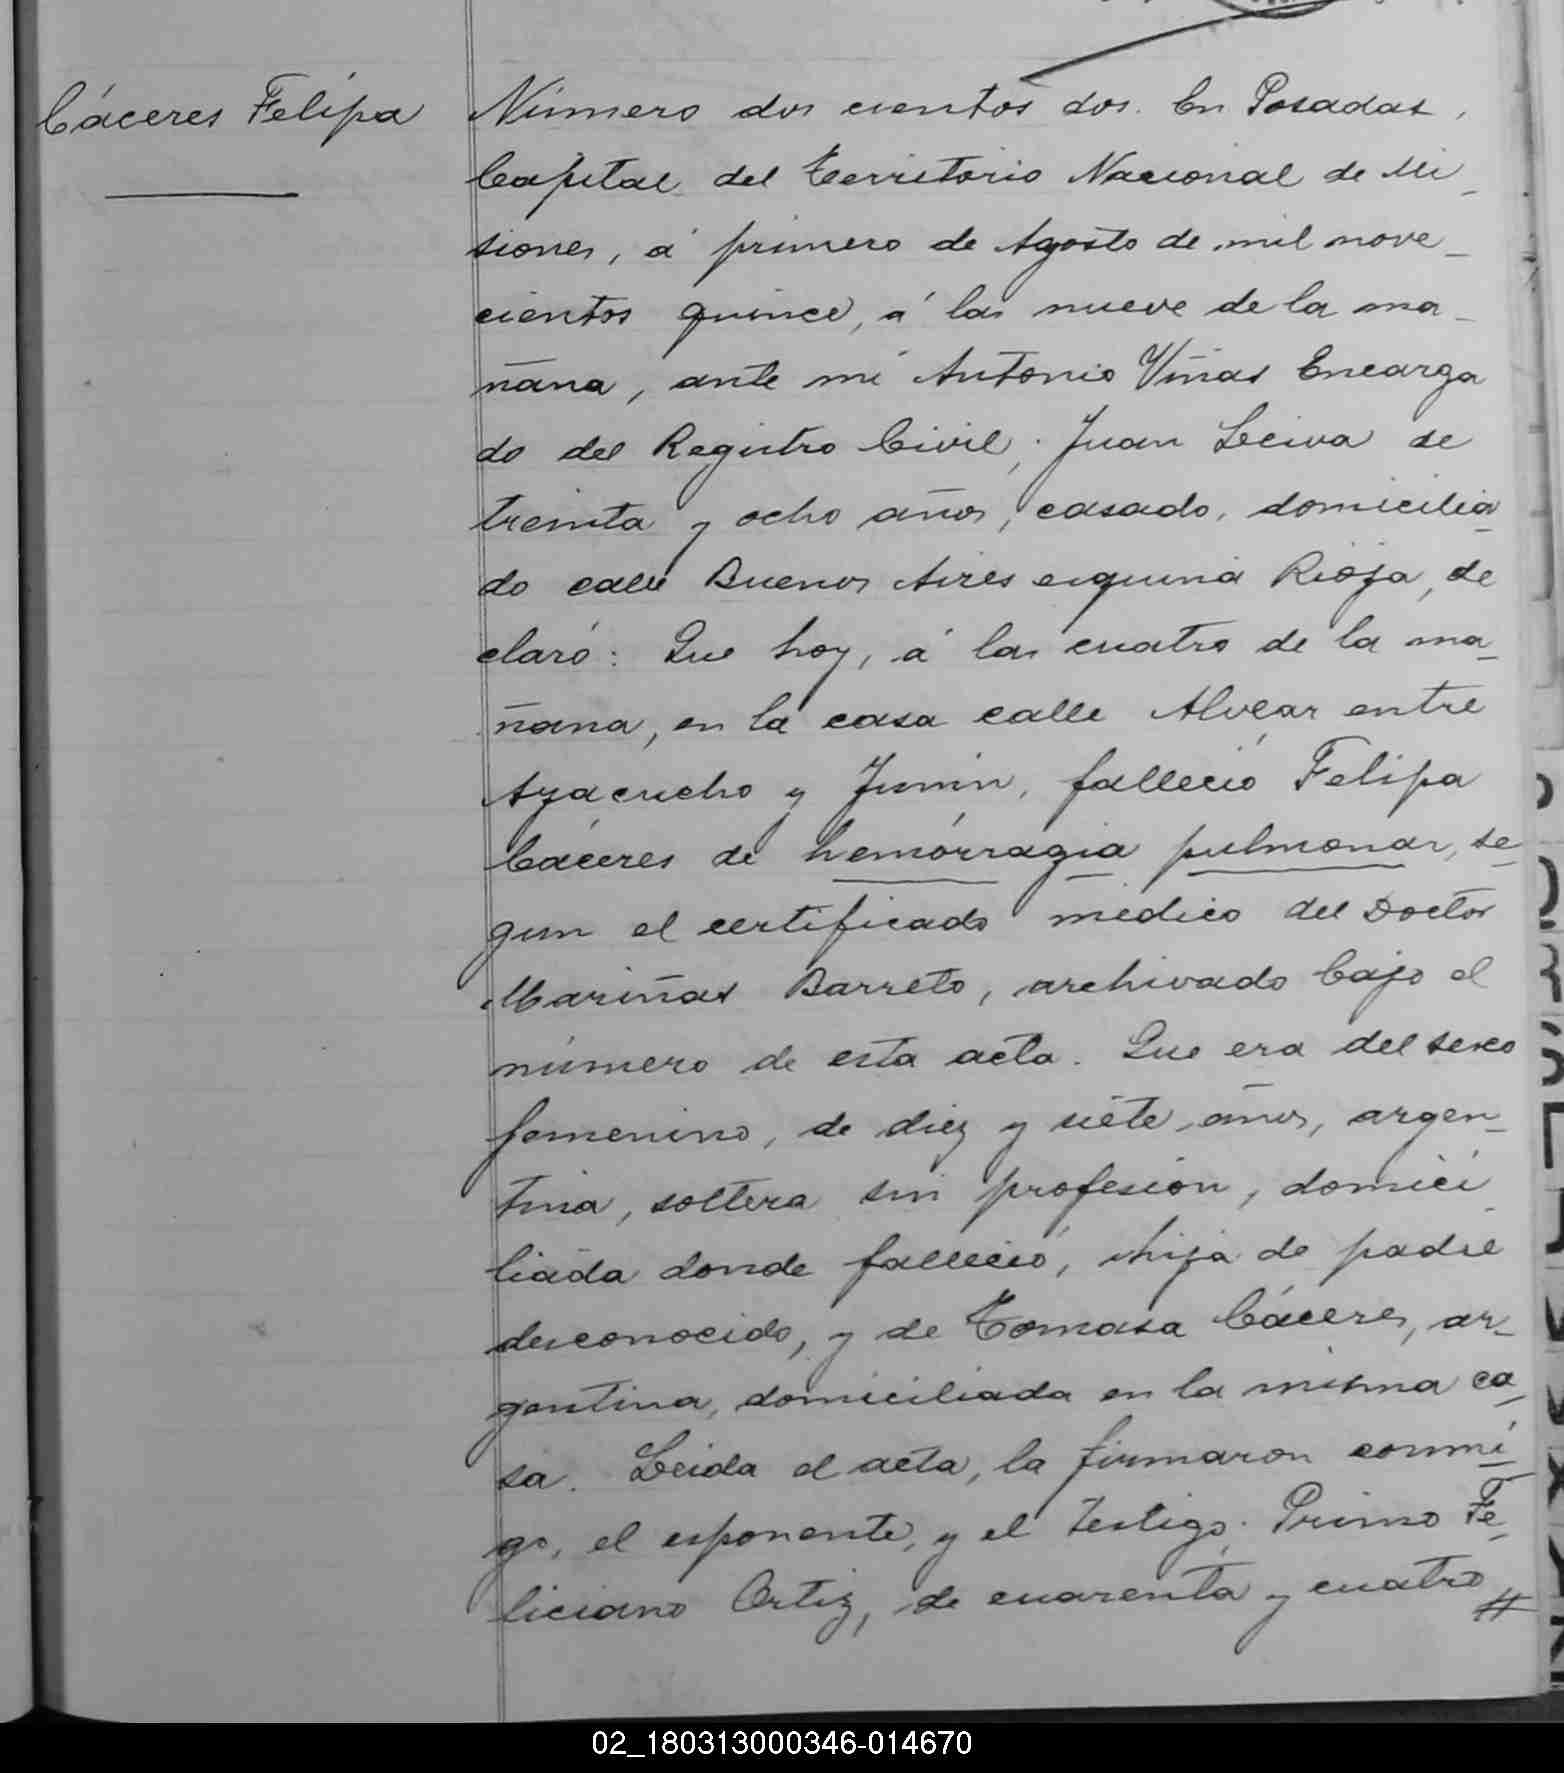 Cáceres Felipa
Número dos cientos dos. En Posadas,
Capital del Territorio Nacional de Mi_
siones, á primero de Agosto de mil nove_
cientos quince, á las nueve de la ma_
ñana, ante mi Antonio Viñas Encarga
do del Registro Civil; Juan Leiva de
treinta y ocho años, casado, domicilia_
do calle Buenos Aires esquina Rioja, de
claró: Que hoy, á las cuatro de la ma_
ñana, en la casa calle Alvear entre
Ayacucho y Junin, falleció Felipa
Cáceres de hemorragia pulmonar, se_
gun el certificado médico del Doctor
Mariñas Barreto, archivado bajo el
número de esta acta. Que era del sexo
femenino, de diez y siete años, argen_
tina, soltera sin profesion, domici_
liada donde falleció, hija de padre
desconocido, y de Tomasa Cáceres, ar_
gentina, domiciliada en la misma ca_
sa. Leida el acta, la firmaron conmi_
go, el esponente, y el testigo: Primo Fe_
liciano Ortiz, de cuarenta y cuatro #
02_180313000346-014670